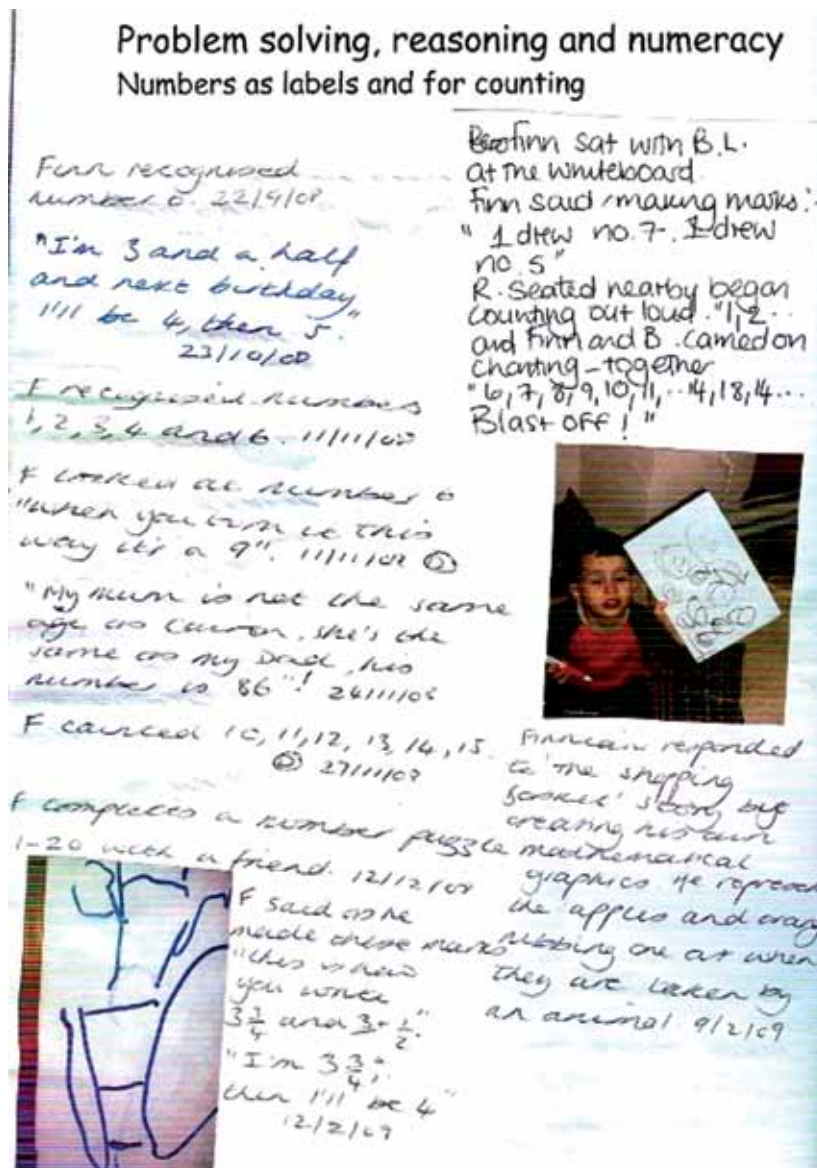 Problem solving, reasoning and numeracy
Numbers as labels and for counting
Finn recognised
number 6. 22/9/08
"I'm 3 and a half
and next birthday
I'll be 4, then 5."
23/10/08
F recognised numbers
1, 2, 3, 4 and 6. 11/11/08
F looked at number 6
"when you turn it this
way it's a 9". 11/11/08
"My mum is not the same
age as , she's the
same as my Dad, his
number is 86"! 24/11/08
F counted 10, 11, 12, 13, 14, 15.
27/11/08
F completes a number puzzle
1-20 with a friend. 12/12/08
F said as he
made these marks
"this is how
you write
3 3/4 and 3 + 1/2."
"I'm 3 3/4,
then I'll be 4"
12/2/09
Finn sat with B.L.
at the whiteboard
Finn said, making marks:-
" I drew no. 7. I drew
no. 5"
R. seated nearby began
counting out loud. "1, 2...
and Finn and B. carried on
chanting - together
"6, 7, 8, 9, 10, 11, ..14, 18, 14....
Blast off ! "
responded
to 'the shopping
basket' story by
creating his own
mathematical
graphics. He represen
the apples and orang
rubbing one out when
they are taken by
an animal 9/2/09